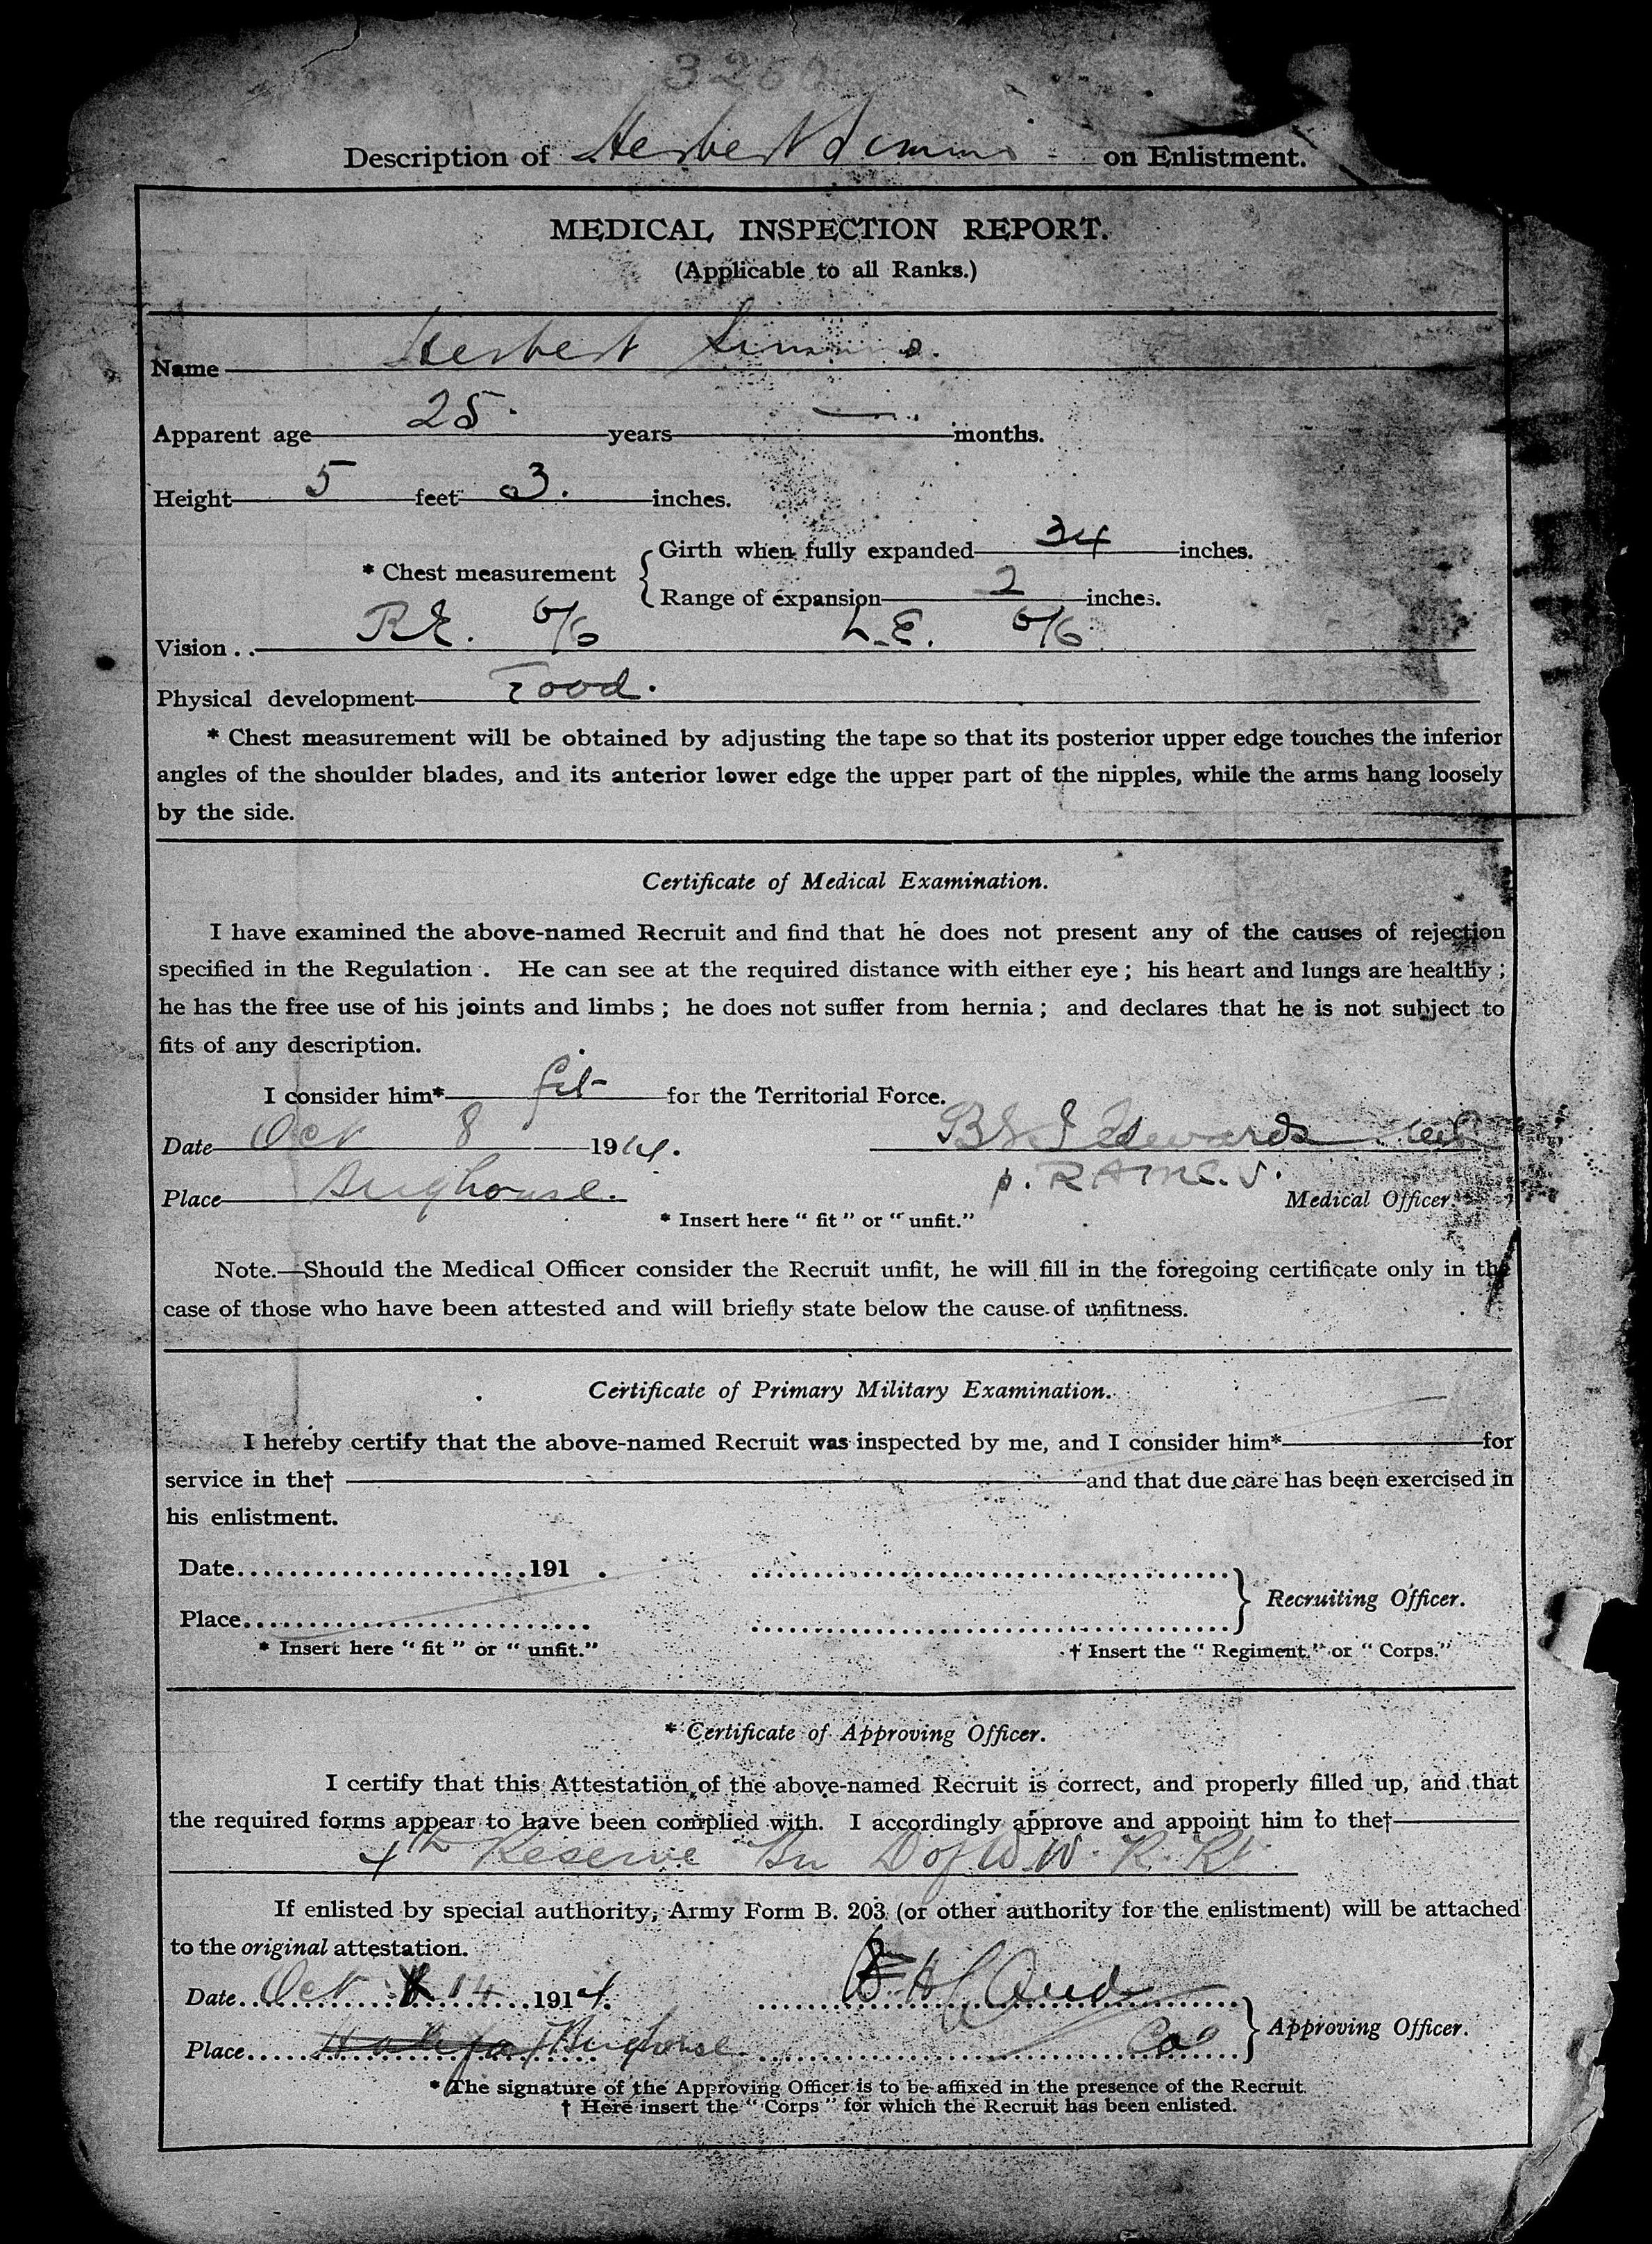 3260
Description of Herbert Simms on Enlistment.
MEDICAL INSPECTION REPORT.
(Applicable to all Ranks.)
Name Herbert Simms.
Apparent age 25 years — months.
Height 5 feet 3. inches.
* Chest measurement { Girth when fully expanded 34 inches.
Range of expansion 2 inches.
Vision . . R.E. 6/6 L.E. 6/6
Physical development Good.
* Chest measurement will be obtained by adjusting the tape so that its posterior upper edge touches the inferior
angles of the shoulder blades, and its anterior lower edge the upper part of the nipples, while the arms hang loosely
by the side.
Certificate of Medical Examination.
I have examined the above-named Recruit and find that he does not present any of the causes of rejection
specified in the Regulation . He can see at the required distance with either eye ; his heart and lungs are healthy ;
he has the free use of his joints and limbs ; he does not suffer from hernia ; and declares that he is not subject to
fits of any description.
I consider him* fit for the Territorial Force.
Date Oct 8 1914. Edwards
Place Brighouse. R.A.M.C. Medical Officer.
* Insert here “ fit ” or “ unfit.”
Note.—Should the Medical Officer consider the Recruit unfit, he will fill in the foregoing certificate only in the
case of those who have been attested and will briefly state below the cause of unfitness.
Certificate of Primary Military Examination.
I hereby certify that the above-named Recruit was inspected by me, and I consider him* for
service in the† and that due care has been exercised in
his enlistment.
Date 191 .
Place Recruiting Officer.
* Insert here “ fit ” or “ unfit.” † Insert the “ Regiment ” or “ Corps.”
* Certificate of Approving Officer.
I certify that this Attestation of the above-named Recruit is correct, and properly filled up, and that
the required forms appear to have been complied with. I accordingly approve and appoint him to the†
4th Reserve Bn D of W W. R. Rt.
If enlisted by special authority, Army Form B. 203 (or other authority for the enlistment) will be attached
to the original attestation.
Date Oct 14 1914.
Place Halifax Brighouse Approving Officer.
* The signature of the Approving Officer is to be affixed in the presence of the Recruit.
† Here insert the “ Corps ” for which the Recruit has been enlisted.